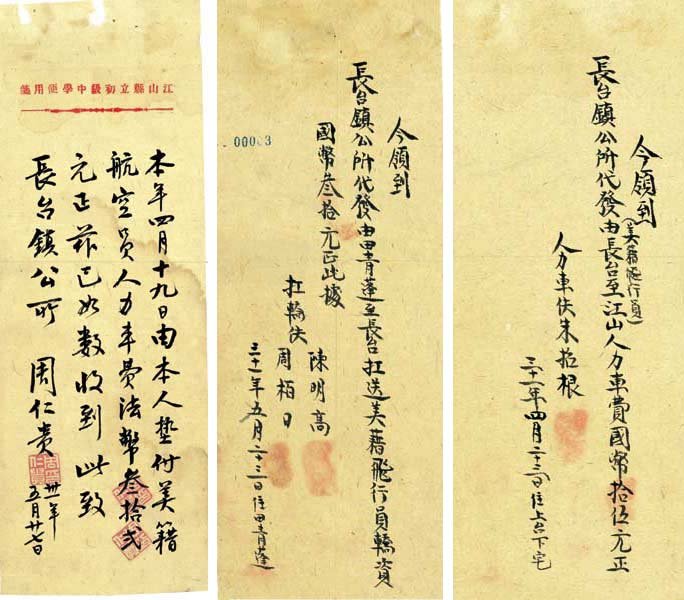 江山縣立初級中學便用箋
本年四月十九日由本人墊付美籍
航空員人力车費法幣叁拾弍
元正茲已如數收到此致
長台鎮公所 周仁贵
卅一年
五月廿七日
00003
今領到
長台鎮公所代發由田青蓬至長台扛送美藉飛行員轎資
國幣叁拾元正此據
扛輪伕 陳明高
周栢日
三十一年五月二十三日住田青蓬
今領到
(美籍飛行員)
長台鎮公所代發由長台至江山人力車費國幣拾伍元正
人力車伕朱招根
三十一年四月二十二日住上台下宅